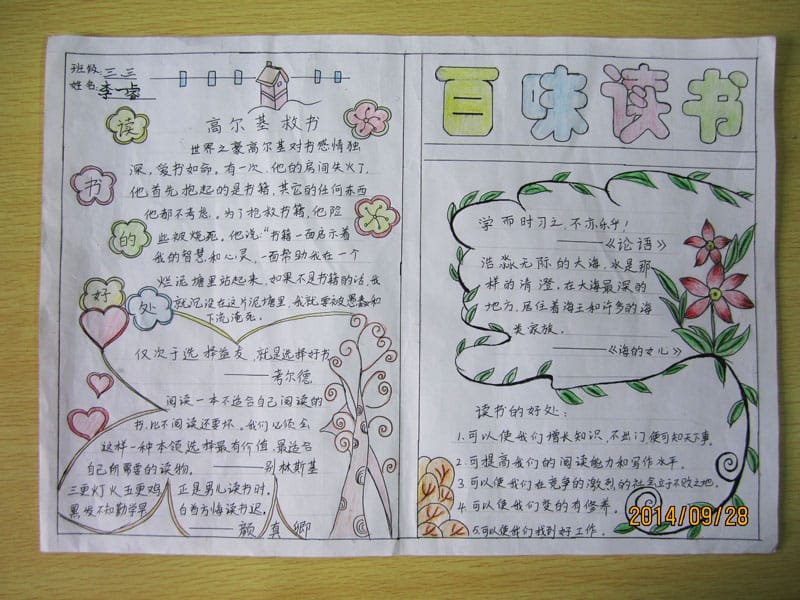 班级：三三
姓名：李
读书的好处
高尔基救书
世界之豪高尔基对书感情独
深，爱书如命。有一次，他的房间失火了，
他首先抱起的是书籍，其它的任何东西
他都不考虑。为了抢救书籍，他险
些被烧死。他说：“书籍一面启示着
我的智慧和心灵，一面帮助我在一个
烂泥塘里站起来，如果不是书籍的话，我
就沉没在这片泥塘里，我就要被愚蠢和
下流淹死。
仅次于选择益友，就是选择好书
——考尔德
阅读一本不适合自己阅读的
书，比不阅读还要坏。我们必须会
这样一种本领，选择最有价值、最适合
自己所需要的读物。——别林斯基
三更灯火五更鸡，正是男儿读书时。
黑发不知勤学早，白首方悔读书迟。
——颜真卿
百味读书
学而时习之，不亦乐乎！
——《论语》
浩淼无际的大海，水是那
样的清澄，在大海最深的
地方，居住着海王和许多的海
类家族。
——《海的女儿》
读书的好处：
1.可以使我们增长知识，不出门，便可知天下事。
2.可提高我们的阅读能力和写作水平。
3.可以使我们在竞争的激烈的社会立于不败之地。
4.可以使我们变的有修养。
5.可以使我们找到好工作。
2014/09/28